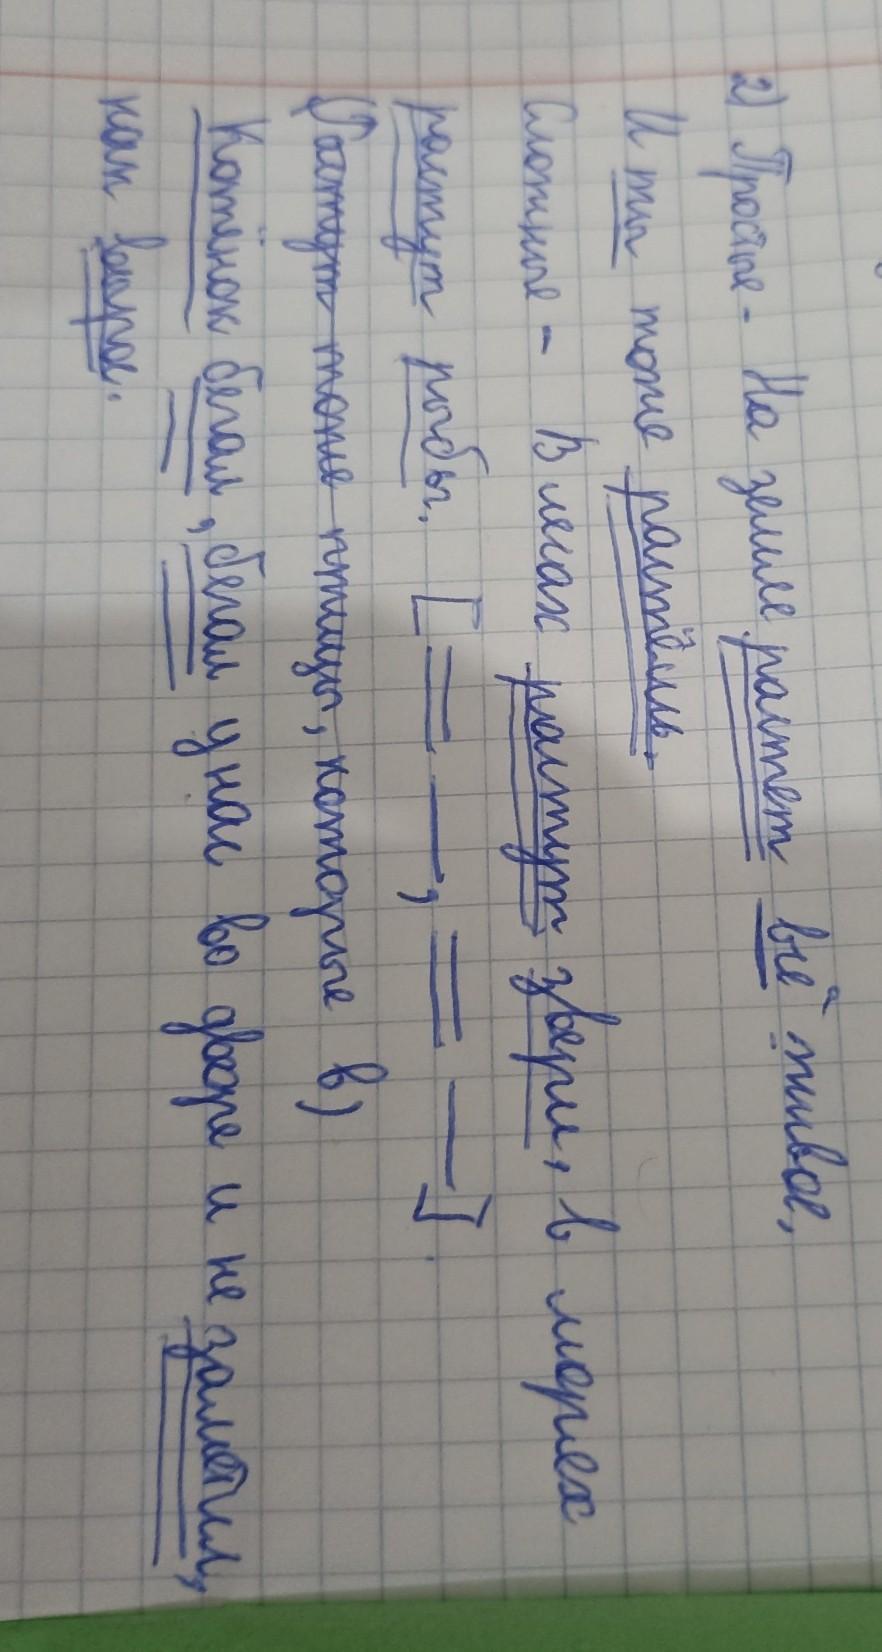 2) Простые - На земле растет всё живое,
И ты тоже растёшь.
Сложные - В лесах растут звери, в морях
растут рыбы. [= —, = —].
(Растут тоже птицы, которые в)
Котёнок бегал, бегал у нас во дворе и не заметил,
как вырос.